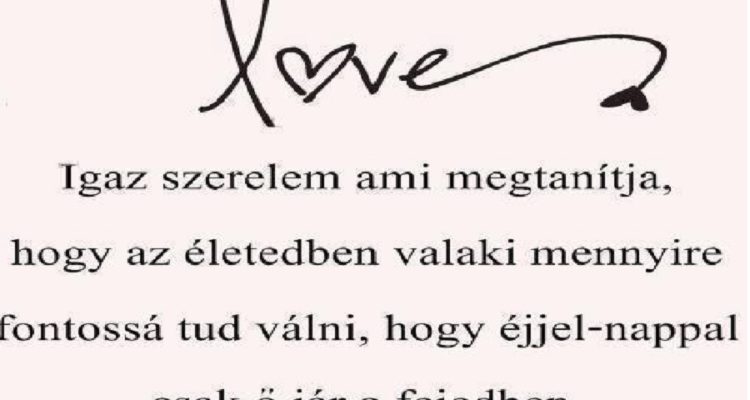 love
Igaz szerelem ami megtanítja,
hogy az életedben valaki mennyire
fontossá tud válni, hogy éjjel-nappal
csak ő jár a fejedben